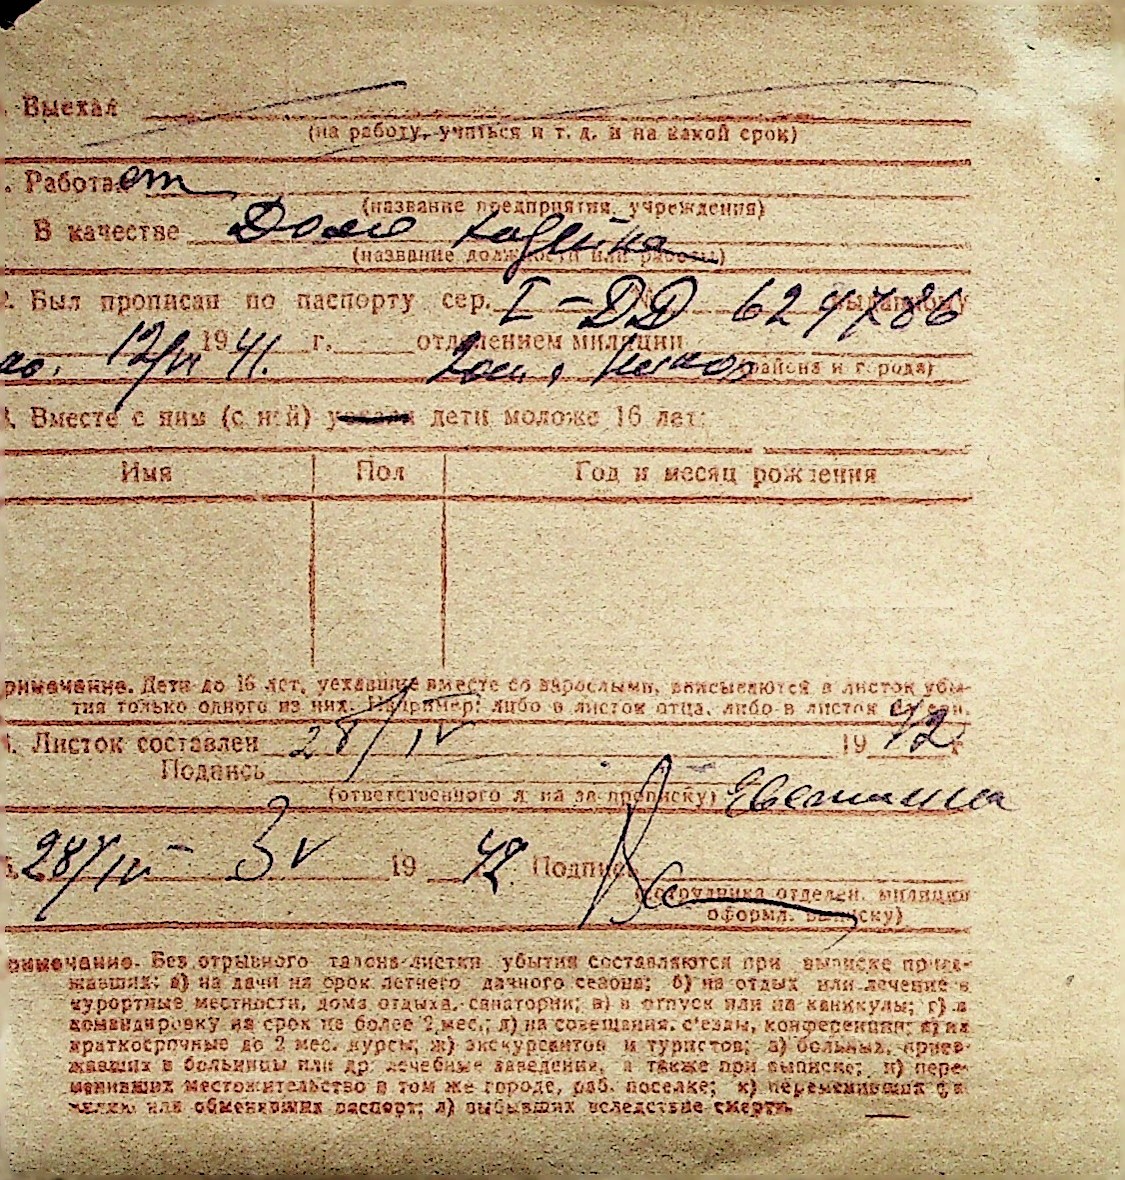 . Выехал
(на работу, учиться и т. д. и на какой срок)
. Работает
(название предприятия, учреждения)
В качестве Домо хозяйка
(название должности или работы)
2. Был прописан по паспорту сер. I-ДД № 624786 выданному
12/VI 1941. г. отделением милиции
района и города)
3. Вместе с ним (с ней) дети моложе 16 лет:
Имя Пол Год и месяц рождения
римечание. Дети до 16 лет, уехавшие вместе со взрослыми, вписываются в листок убы-
тия только одного из них. Например: либо в листок отца, либо в листок матери.
4. Листок составлен 28/IV 1942 г.
Подпись
(ответственного л на за прописку)
5. 28/IV - 3 V 1942. Подпись
(сотрудника отделен. милиции
оформл. выписку)
римечание. Без отрывного талона листки убытия составляются при выписке приез-
жавших: а) на дачи на срок летнего дачного сезона; б) на отдых или лечение в
курортные местности, дома отдыха, санатории; в) в отпуск или на каникулы; г) в
командировку на срок не более 2 мес.; д) на совещания, с'езды, конференции; е) на
краткосрочные до 2 мес. курсы; ж) экскурсантов и туристов; з) больных, приез-
жавших в больницы или др. лечебные заведения, а также при выписке; и) пере-
менивших местожительство в том же городе, раб. поселке; к) переменивших фа-
милии или обменявших паспорт; л) выбывших вследствие смерти.